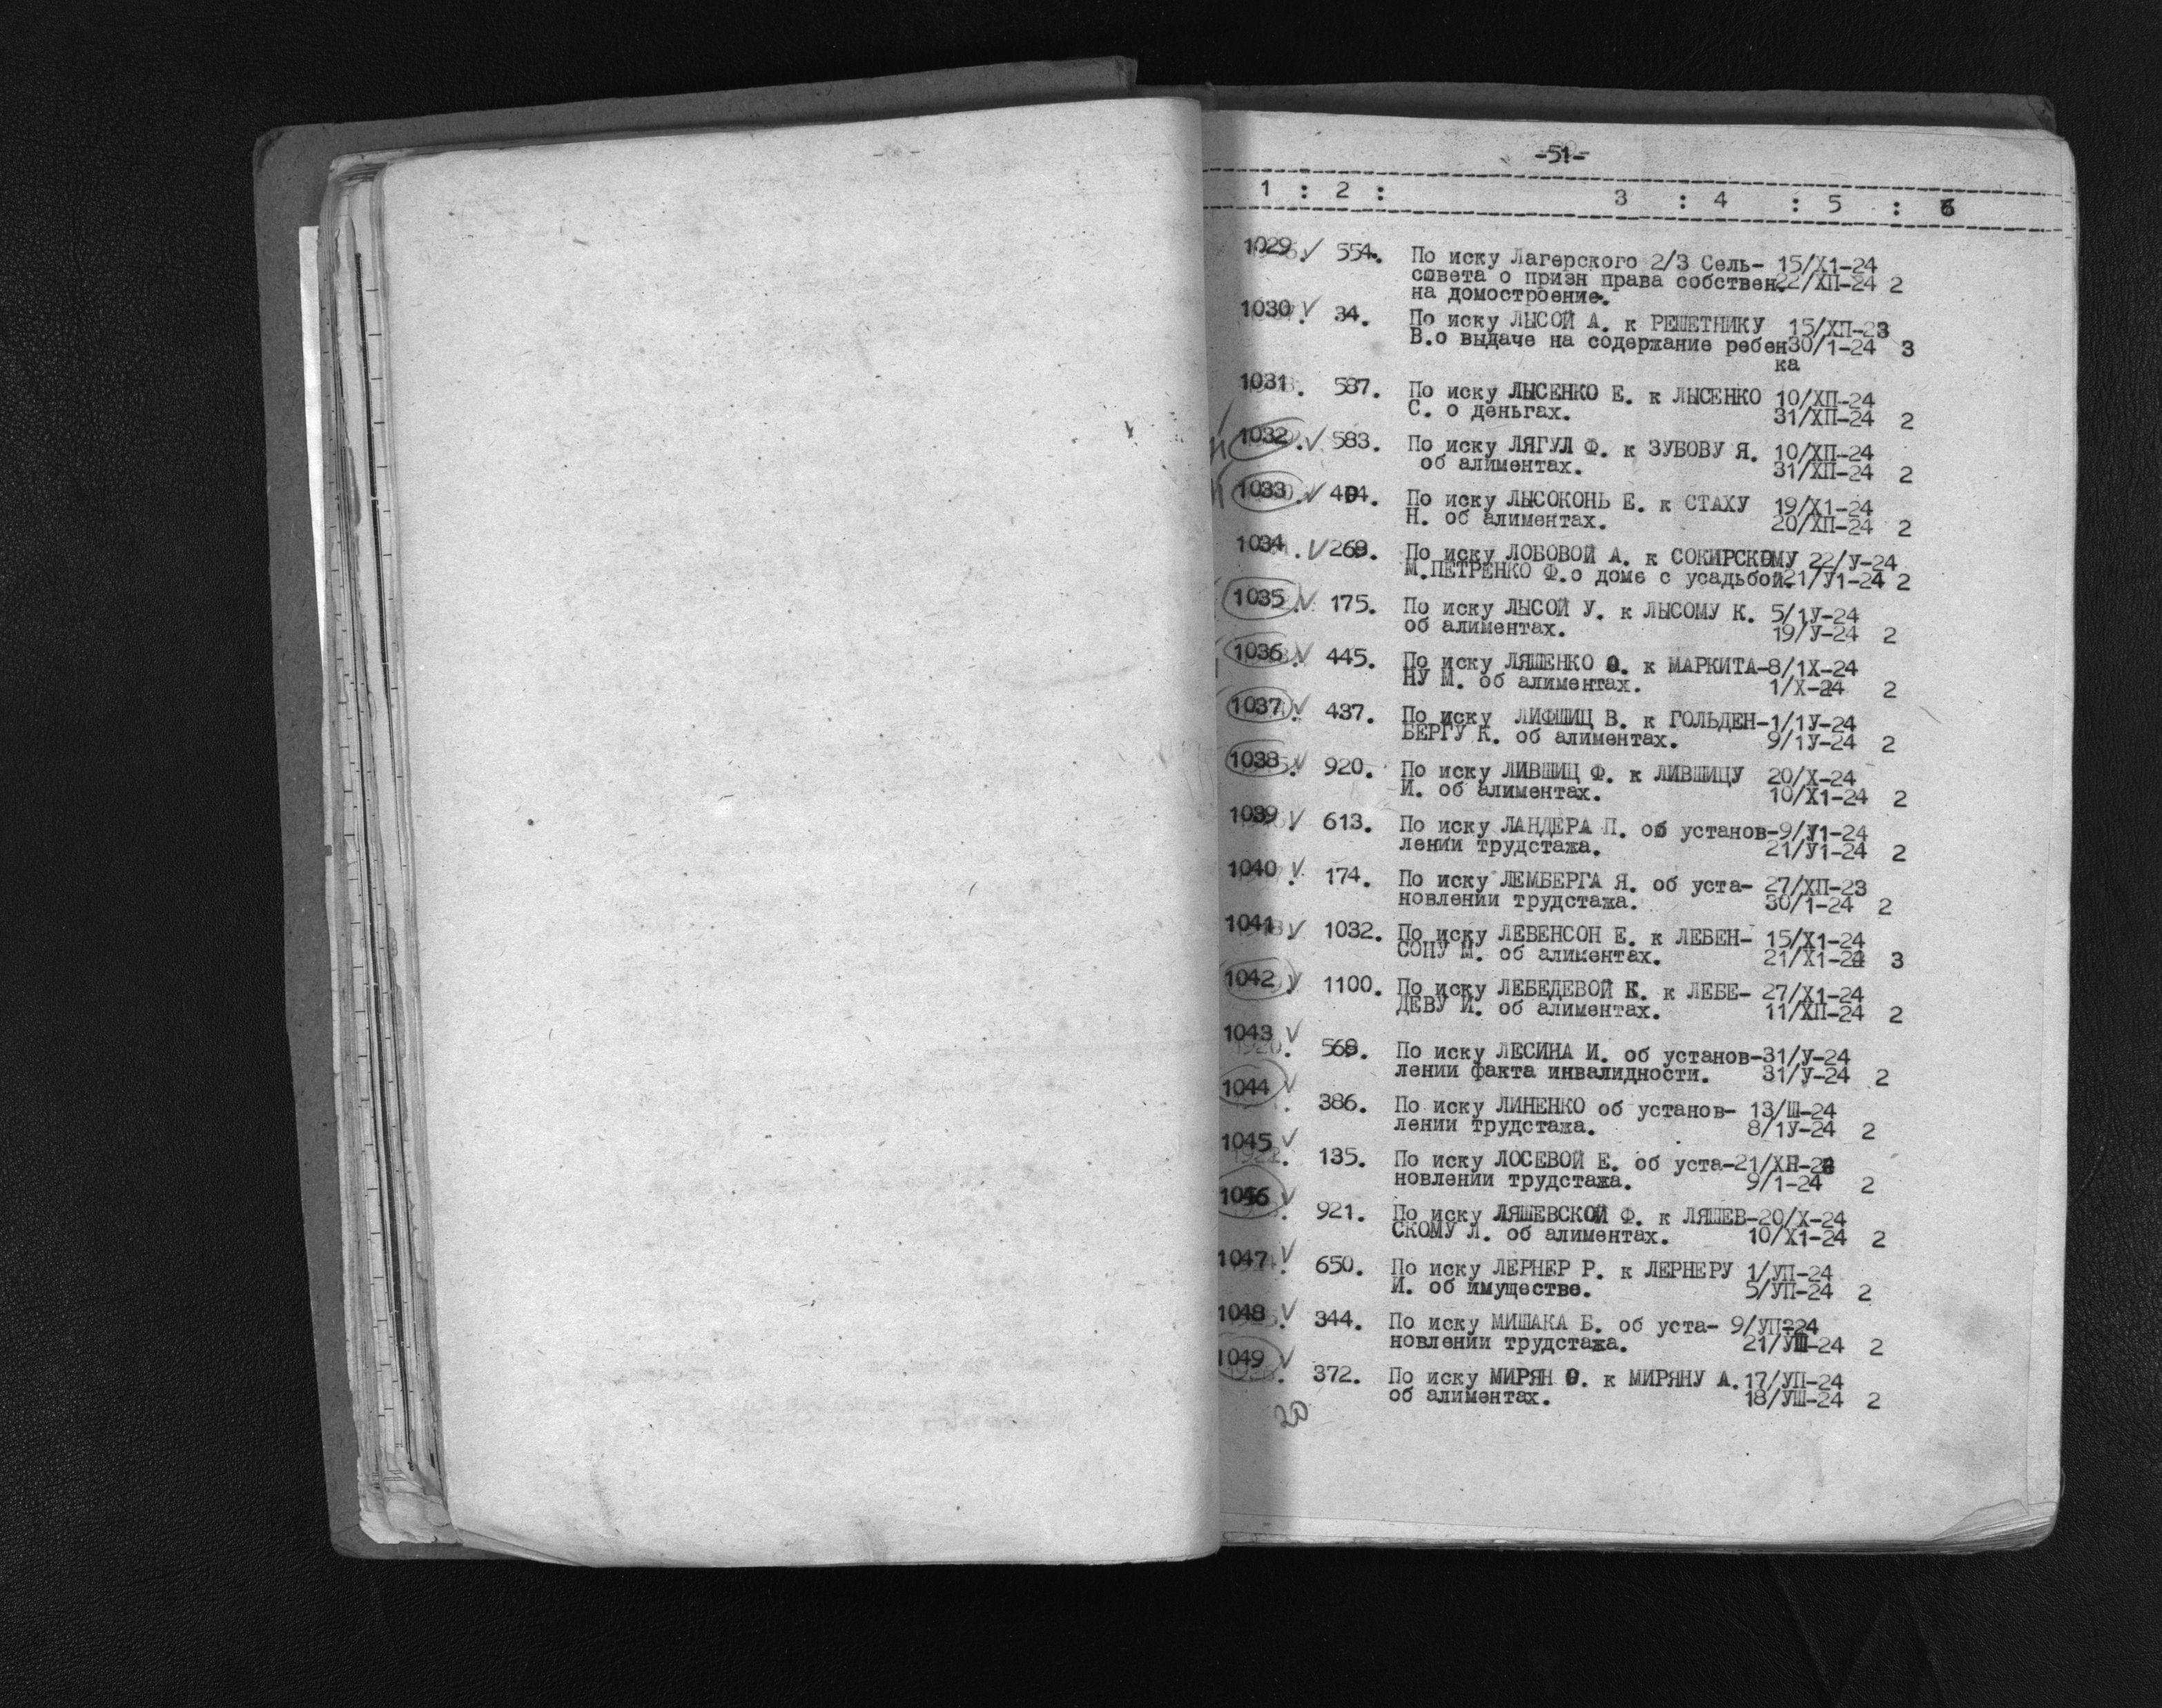 -51-
1 : 2 : 3 : 4 : 5 : 6
1029. √ 554. По иску Лагерского 2/3 Сель- 15/Х1-24
совета о призн права собствен. 22/ХП-24 2
на домостроение.
1030. √ 34. По иску ЛЫСОЙ А. к РЕШЕТНИКУ 15/ХП-23
В.о выдаче на содержание ребен 30/1-24 3
ка
1031. 587. По иску ЛЫСЕНКО Е. к ЛЫСЕНКО 10/ХП-24
С. о деньгах. 31/ХП-24 2
1032. √ 583. По иску ЛЯГУЛ Ф. к ЗУБОВУ Я. 10/ХП-24
об алиментах. 31/ХП-24 2
1033. √ По иску ЛЫСОКОНЬ Е. к СТАХУ 19/Х1-24
Н. об алиментах. 20/ХП-24 2
1034. √ 269. По иску ЛОБОВОЙ А. к СОКИРСКОМУ 22/У-24
М.ПЕТРЕНКО Ф.о доме с усадьбой. 21/У1-24 2
1035. √ 175. По иску ЛЫСОЙ У. к ЛЫСОМУ К. 5/1У-24
об алиментах. 19/У-24 2
1036. √ 445. По иску ЛЯШЕНКО к МАРКИТА- 8/1Х-24
НУ М. об алиментах. 1/Х-24 2
1037. √ 437. По иску ЛИФШИЦ В. к ГОЛЬДЕН- 1/1У-24
БЕРГУ К. об алиментах. 9/1У-24 2
1038. √ 920. По иску ЛИВШИЦ Ф. к ЛИВШИЦУ 20/Х-24
И. об алиментах. 10/Х1-24 2
1039. √ 613. По иску ЛАНДЕРА П. об установ- 9/У1-24
лении трудстажа. 21/У1-24 2
1040. √ 174. По иску ЛЕМБЕРГА Я. об уста- 27/ХП-23
новлении трудстажа. 30/1-24 2
1041. √ 1032. По иску ЛЕВЕНСОН Е. к ЛЕВЕН- 15/Х1-24
СОНУ М. об алиментах. 21/Х1-24 3
1042. √ 1100. По иску ЛЕБЕДЕВОЙ Е. к ЛЕБЕ- 27/Х1-24
ДЕВУ И. об алиментах. 11/ХП-24 2
1043. √ 569. По иску ЛЕСИНА И. об установ- 31/У-24
лении факта инвалидности. 31/У-24 2
1044. √ 386. По иску ЛИНЕНКО об установ- 13/Ш-24
лении трудстажа. 8/1У-24 2
1045. √ 135. По иску ЛОСЕВОЙ Е. об уста-
новлении трудстажа. 9/1-24 2
1046. √ 921. По иску ЛЯШЕВСКОЙ Ф. к ЛЯШЕВ- 20/Х-24
СКОМУ Л. об алиментах. 10/Х1-24 2
1047. √ 650. По иску ЛЕРНЕР Р. к ЛЕРНЕРУ 1/УП-24
И. об имуществе. 5/УП-24 2
1048. √ 344. По иску МИШАКА Б. об уста- 9/УП-24
новлении трудстажа. 21/УШ-24 2
1049. √ 372. По иску МИРЯН О. к МИРЯНУ А. 17/УП-24
об алиментах. 18/УШ-24 2
20